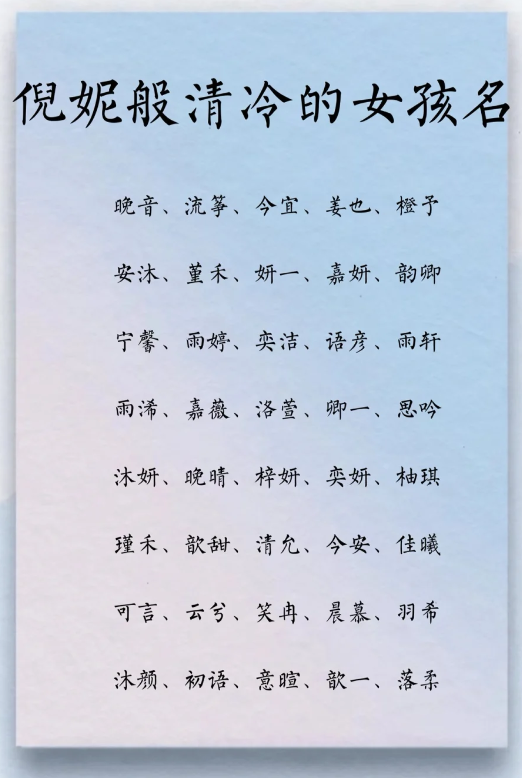 倪妮般清冷的女孩名
晚音、流筝、今宜、姜也、橙予
安沐、堇禾、妍一、嘉妍、韵卿
宁馨、雨婷、奕洁、语彦、雨轩
雨浠、嘉薇、洛萱、卿一、思吟
沐妍、晚晴、梓妍、奕妍、柚琪
瑾禾、歆甜、清允、今安、佳曦
可言、云兮、笑冉、晨慕、羽希
沐颜、初语、意暄、歆一、落柔